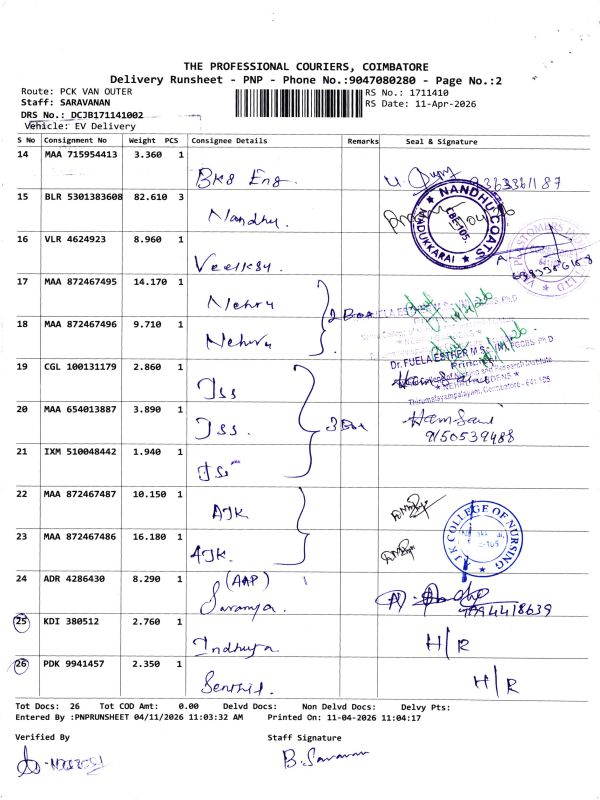 THE PROFESSIONAL COURIERS, COIMBATORE
Delivery Runsheet - PNP - Phone No.:9047080280 - Page No.:2
Route: PCK VAN OUTER
RS No.: 1711410
Staff: SARAVANAN
RS Date: 11-Apr-2026
DRS No.: DCJB171141002
Vehicle: EV Delivery
S No Consignment No Weight PCS Consignee Details Remarks Seal & Signature
14 MAA 715954413 3.360 1 Eng.
15 BLR 5301383608 82.610 3 Nandhu.
NANDHU COATS MADUKKARAI CBE-105.
16 VLR 4624923 8.960 1
17 MAA 872467495 14.170 1 Nehru
2 Box
18 MAA 872467496 9.710 1 Nehru
Dr. FUELA ESTHER
Thirumalayampalayam, Coimbatore - 641 105
19 CGL 100131179 2.860 1 Jss
20 MAA 654013887 3.890 1 Jss. 3 Box
9150539488
21 IXM 510048442 1.940 1 Jss
22 MAA 872467487 10.150 1 AJK
A J K COLLEGE OF NURSING
23 MAA 872467486 16.180 1 AJK.
24 ADR 4286430 8.290 1 (AAP) Saranya.
25 KDI 380512 2.760 1 Indhuja H/R
26 PDK 9941457 2.350 1 Senthil. H/R
Tot Docs: 26 Tot COD Amt: 0.00 Delvd Docs: Non Delvd Docs: Delvy Pts:
Entered By :PNPRUNSHEET 04/11/2026 11:03:32 AM Printed On: 11-04-2026 11:04:17
Verified By Staff Signature
B. Saravanan